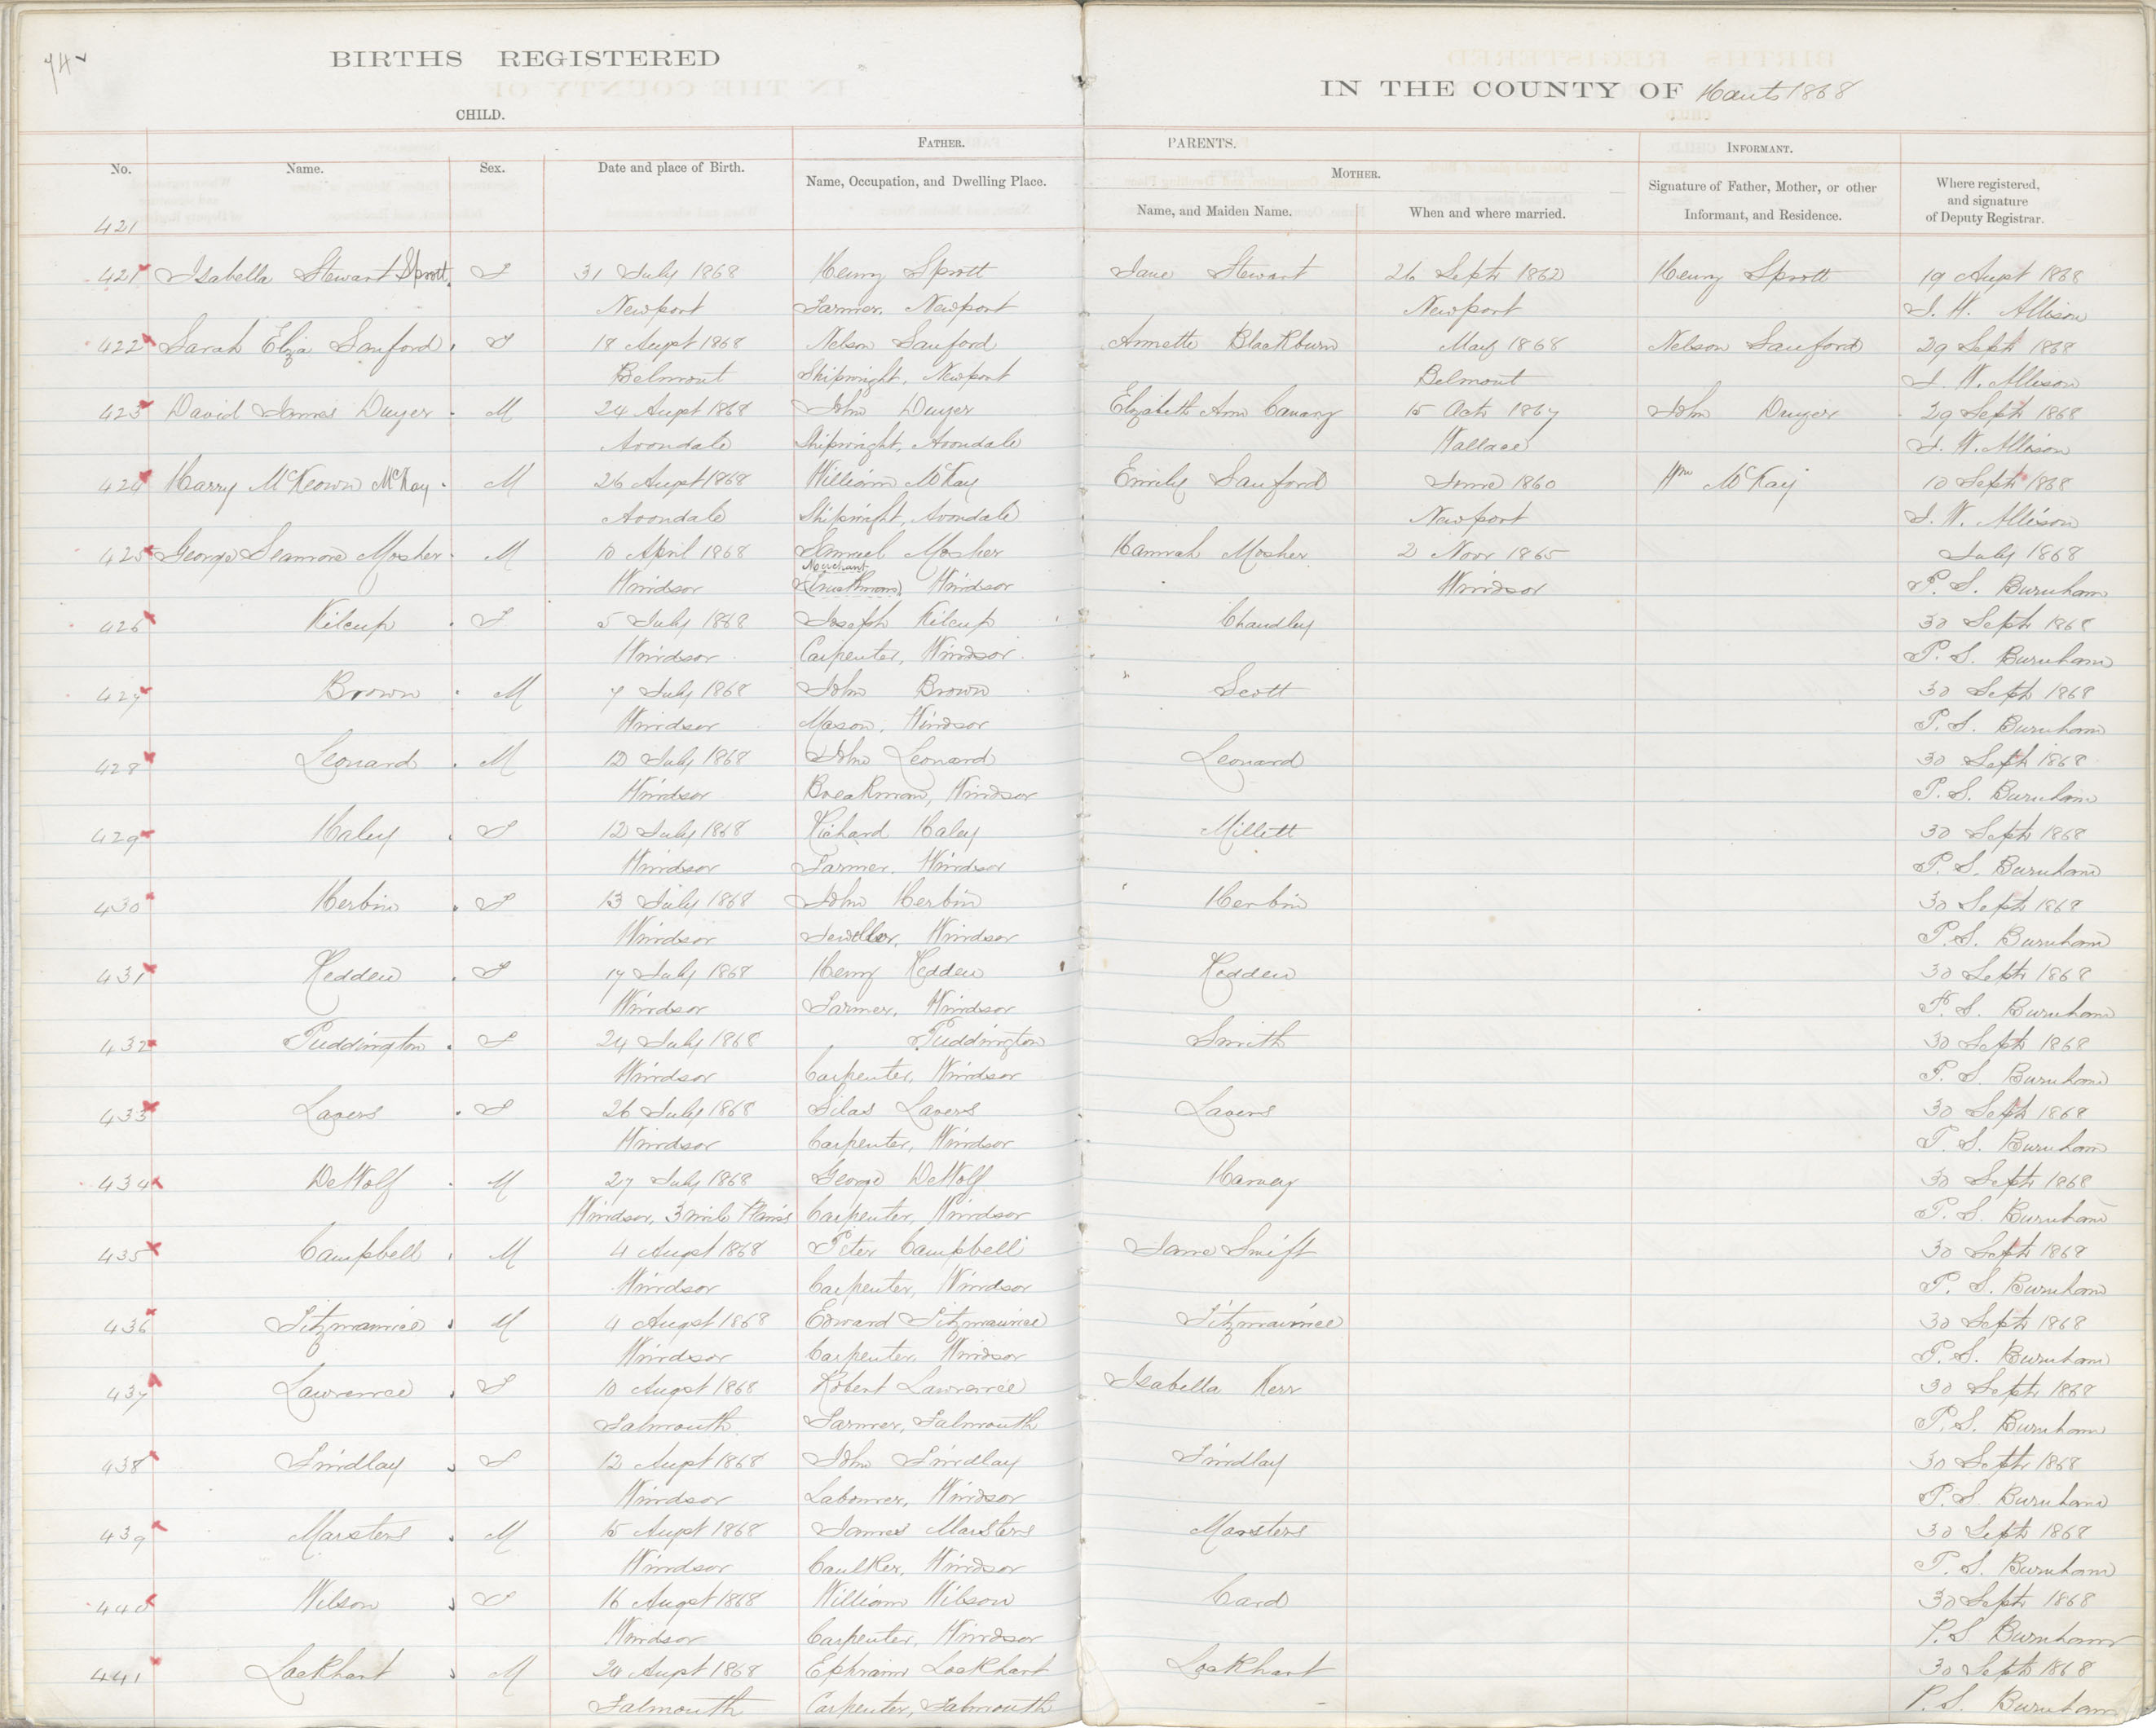 74
BIRTHS REGISTERED
IN THE COUNTY OF Hants 1868
CHILD.
PARENTS.
FATHER.
MOTHER.
INFORMANT.
No.
Name.
Sex.
Date and place of Birth.
Name, Occupation, and Dwelling Place.
Name, and Maiden Name.
When and where married.
Signature of Father, Mother, or other
Informant, and Residence.
Where registered,
and signature
of Deputy Registrar.
421
421 Isabella Stewart Sprott F 31 July 1868 Henry Sprott Jane Stewart 26 Sept 1862 Henry Sprott 19 Augst 1868
Newport Farmer, Newport Newport J. W. Allison
422 Sarah Eliza Sanford F 18 Augst 1868 Nelson Sanford Annette Blackburn May 1868 Nelson Sanford 29 Sept 1868
Belmont Shipwright, Newport Belmont J. W. Allison
423 David James Dwyer M 24 Augst 1868 John Dwyer Elizabeth Ann Canary 15 Octr 1867 John Dwyer 29 Sept 1868
Avondale Shipwright, Avondale Wallace J. W. Allison
424 Harry McKeown McKay M 26 Augst 1868 William McKay Emily Sanford June 1860 Wm McKay 10 Sept 1868
Avondale Shipwright, Avondale Newport J. W. Allison
425 George Seamore Mosher M 10 April 1868 Samuel Mosher Hannah Mosher 2 Novr 1865 July 1868
Merchant
Windsor Windsor Windsor P. S. Burnham
426 Kilcup F 5 July 1868 Joseph Kilcup Chandley 30 Septr 1868
Windsor Carpenter, Windsor P. S. Burnham
427 Brown M 7 July 1868 John Brown Scott 30 Sept 1868
Windsor Mason, Windsor P. S. Burnham
428 Leonard M 12 July 1868 John Leonard Leonard 30 Sept 1868
Windsor Breakman, Windsor P. S. Burnham
429 Haley F 12 July 1868 Richard Haley Millett 30 Septr 1868
Windsor Farmer, Windsor P. S. Burnham
430 Herbin F 13 July 1868 John Herbin Herbin 30 Septr 1868
Windsor Jeweller, Windsor P. S. Burnham
431 Redden F 17 July 1868 Henry Redden Redden 30 Septr 1868
Windsor Farmer, Windsor P. S. Burnham
432 Puddington F 24 July 1868 Puddington Smith 30 Septr 1868
Windsor Carpenter, Windsor P. S. Burnham
433 Lavers F 26 July 1868 Silas Lavers Lavers 30 Sept 1868
Windsor Carpenter, Windsor P. S. Burnham
434 DeWolf M 27 July 1868 George DeWolf Harvey 30 Septr 1868
Windsor, 3 mile Plains Carpenter, Windsor P. S. Burnham
435 Campbell M 4 Augst 1868 Peter Campbell Jane Swift 30 Septr 1868
Windsor Carpenter, Windsor P. S. Burnham
436 Fitzmaurice M 4 Augst 1868 Edward Fitzmaurice Fitzmaurice 30 Septr 1868
Windsor Carpenter, Windsor P. S. Burnham
437 Lawrence F 10 Augst 1868 Robert Lawrence Isabella Kerr 30 Septr 1868
Falmouth Farmer, Falmouth P. S. Burnham
438 Findlay F 12 Augst 1868 John Findlay Findlay 30 Septr 1868
Windsor Labourer, Windsor P. S. Burnham
439 Marsters M 15 Augst 1868 James Marsters Marsters 30 Septr 1868
Windsor Caulker, Windsor P. S. Burnham
440 Wilson F 16 Augst 1868 William Wilson Card 30 Septr 1868
Windsor Carpenter, Windsor P. S. Burnham
441 Lockhart M 20 Augst 1868 Ephraim Lockhart Lockhart 30 Septr 1868
Falmouth Carpenter, Falmouth P. S. Burnham